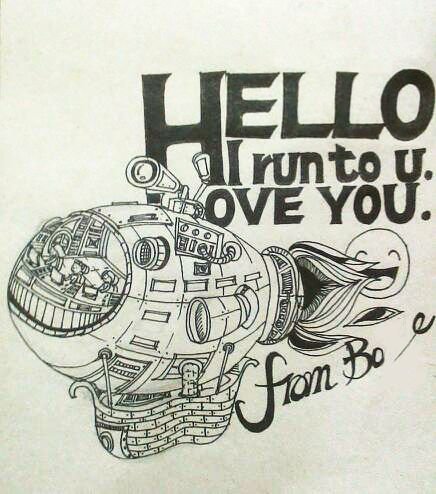 HELLO
I run to u.
LOVE YOU.
from